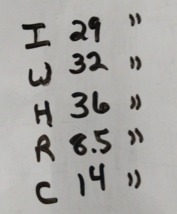 I 29 "
W 32 "
H 36 "
R 8.5 "
C 14 "